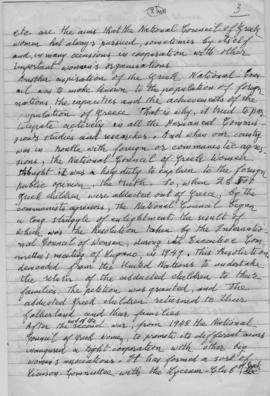 3
etc are the aims that the National Council of Greek
women has always pursued, sometimes by itself
and in many occasions in cooperation with other
important women's organisations
Another aspiration of the Greek National Coun-
cil was to make known to the population of foreign
nations, the capacities and the achievements of the
population of Greece. That is why, it tried to par-
ticipate actively in all the Permanent Commis-
sions studies and researches. And when our country
was in trouble with foreign or communistic agres-
sions, the National Council of Greek Women
thought it was a holy duty to explain to the foreign
public opinion, the truth. So, when 28.000
Greek children were abducted out of Greece, by the
communists agressors, the National Council began
a long struggle of enlightment the result of
which was the Resolution taken by the Internatio-
nal Council of Women, during its Executive Com-
mittee's meeting of 1949. This Resolution
demanded from the United Nations to undertake
the return of the abducted children to their
families. The petition was granted, and the
abducted Greek children returned to their
fatherland and their families
After the second war, from 1908 the National
Council of Greek Women, to promote its different aims
a tight cooperation with other big
women's associations. It has formed a sort of
Liaison Committee with the Lyceum-Club of Greek